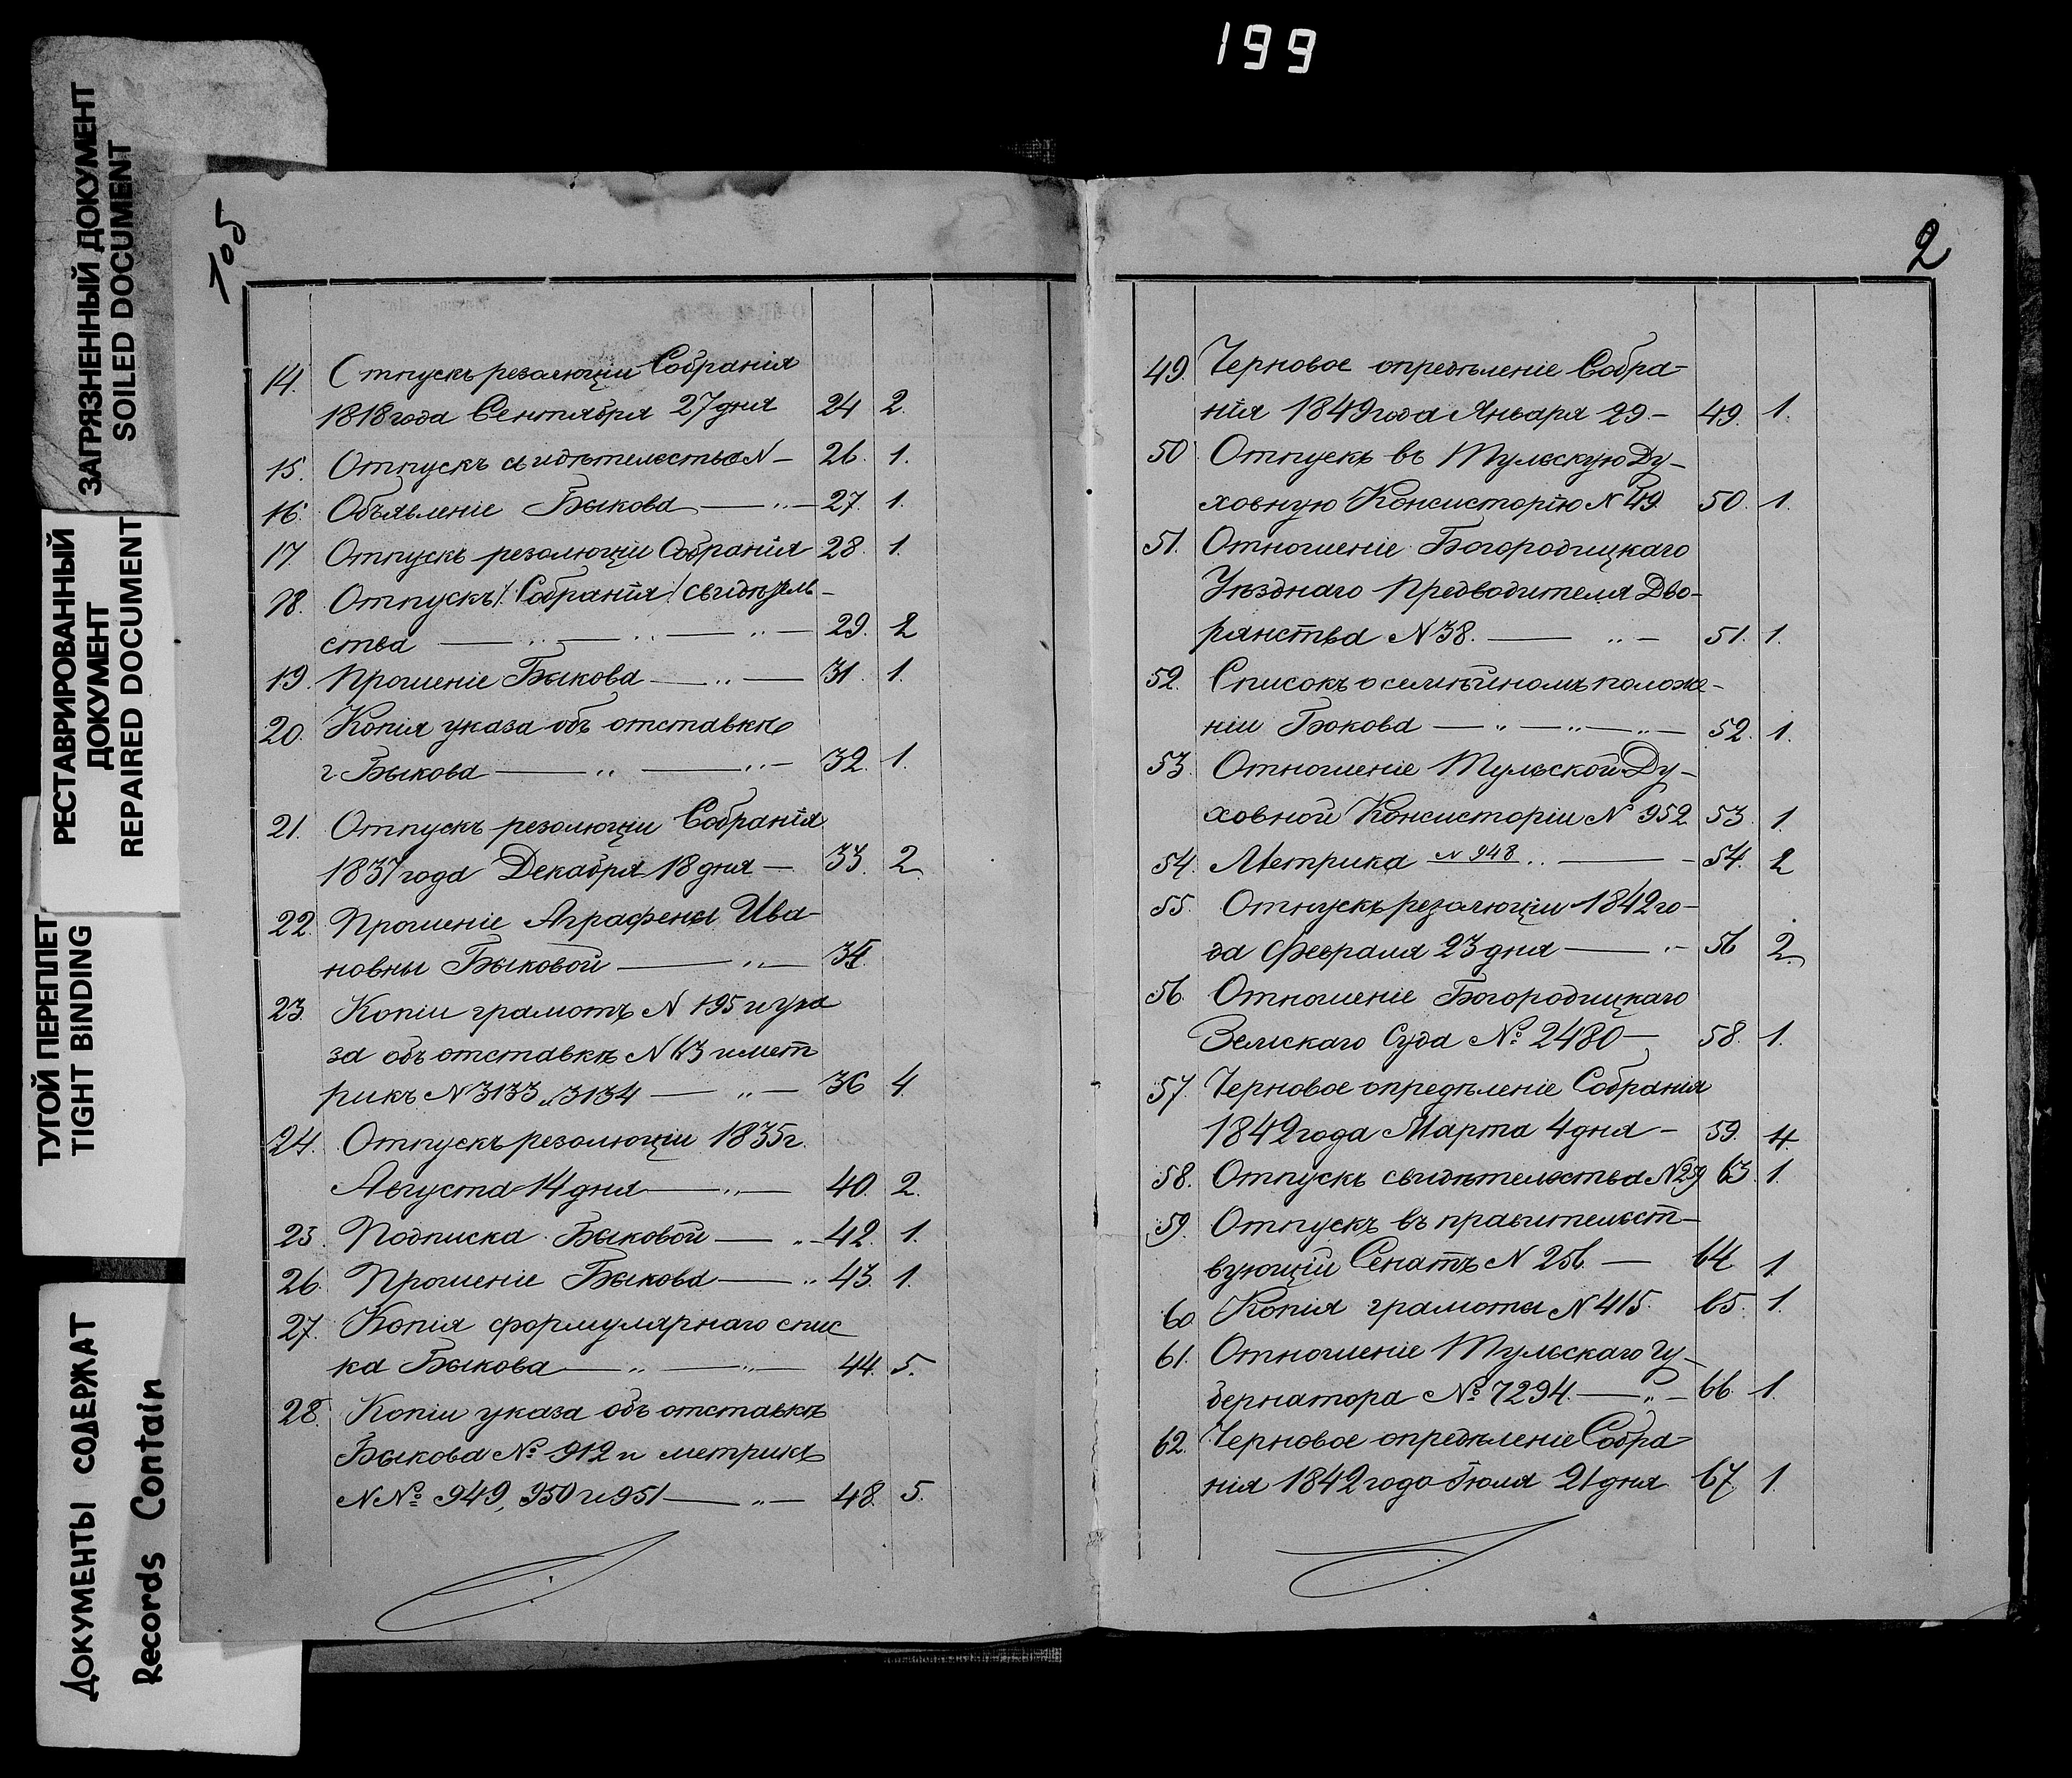 199
ЗАГРЯЗНЕННЫЙ ДОКУМЕНТ
SOILED DOCUMENT
РЕСТАВРИРОВАННЫЙ
ДОКУМЕНТ
REPAIRED DOCUMENT
ТУГОЙ ПЕРЕПЛЕТ
TIGHT BINDING
ДОКУМЕНТЫ СОДЕРЖАТ
Records Contain
105
14. Отпускъ резолюціи Собранія
1818 года Сентября 27 дня 24 2.
15. Отпускъ свидѣтельства N – 26. 1.
16. Объявленіе Быкова — „ — 27. 1.
17. Отпускъ резолюціи Собранія 28. 1.
18. Отпускъ /Собранія/ свидѣтель-
ства — „ — „ — „ — 29. 2
19. Прошеніе Быкова — „ — 31. 1.
20. Копія указа объ отставкѣ
г. Быкова — „ — „ — 32. 1.
21. Отпускъ резолюціи Собранія
1837 года Декабря 18 дня — 33. 2.
22. Прошеніе Аграфены Ива-
новны Быковой — „ — 35.
23. Копіи грамотъ N 195 и ука
за объ отставкѣ N 63 и мет
рикъ N 3133 и 3134 — „ — 36 4.
24. Отпускъ резолюціи 1835 г.
Августа 14 дня — „ — 40. 2.
25. Подписка Быковой — „ — 42. 1.
26. Прошеніе Быкова — „ 43. 1.
27. Копія формулярнаго спис
ка Быкова — „ — „ — 44. 5.
28. Копіи указа объ отставкѣ
Быкова № 912 и метрикъ
N№ 949, 950 и 951 — „ — 48. 5.
2
49. Черновое опредѣленіе Собра-
нія 1849 года Января 29 – 49. 1.
50 Отпускъ въ Тульскую Ду-
ховную Консисторію N 49 50. 1.
51. Отношеніе Богородицкаго
Уѣзднаго Предводителя Дво-
рянства N 38. — „ — 51. 1.
52. Списокъ о семѣйномъ положе-
ніи Быкова — „ — „ — „ — 52. 1.
53. Отношеніе Тульской Ду-
ховной Консисторіи N 952 53. 1.
54. Метрика N 948 „ — 54. 2
55. Отпускъ резолюціи 1842 го-
да Февраля 23 дня — „ – 56 2.
56. Отношеніе Богородицкаго
Земскаго Суда № 2480 — 58. 1.
57. Черновое опредѣленіе Собранія
1842 года Марта 4 дня – 59. 4.
58. Отпускъ свидѣтельства N 259 63. 1.
59. Отпускъ въ правительст-
вующій Сенатъ N 256 — 64 1
60 Копія грамоты N 415. 65. 1.
61. Отношеніе Тульскаго Гу-
бернатора № 7294. — „ – 66. 1.
62. Черновое опредѣленіе Собра-
нія 1842 года Іюля 21 дня 67. 1.